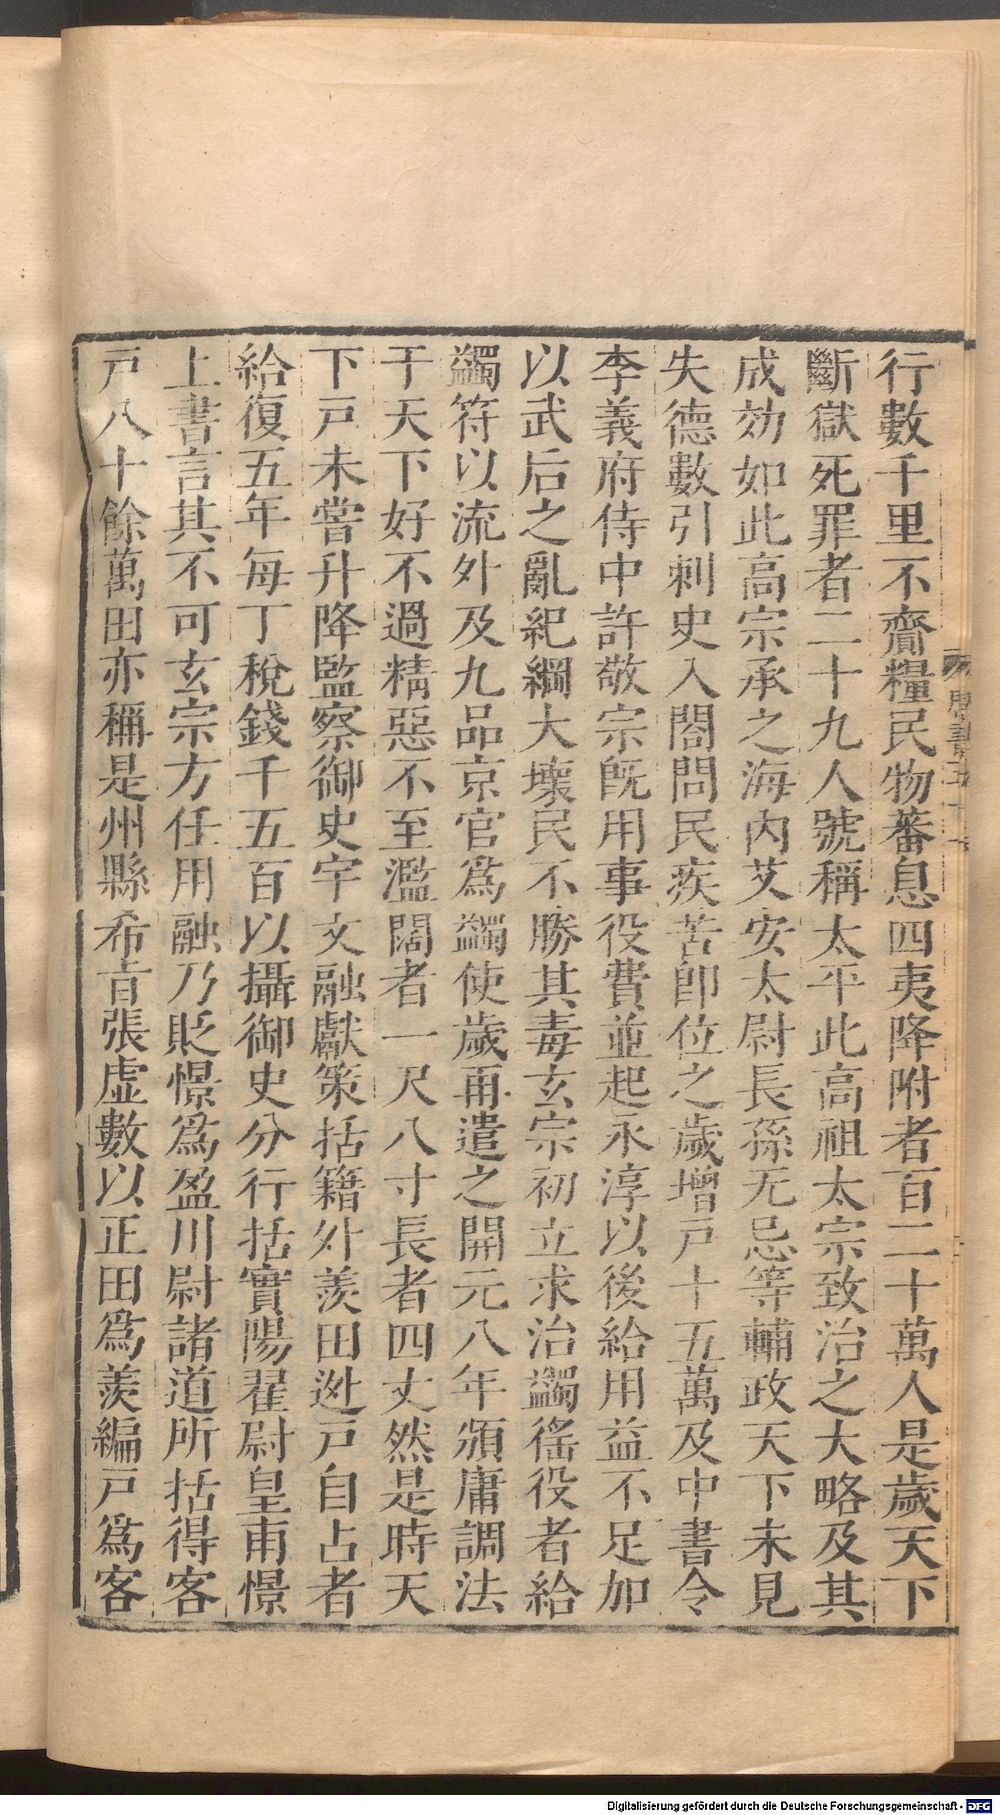 行數千里不齎糧民物蕃息四夷降附者百二十萬人是歲天下
斷獄死罪者二十九人號稱太平此高祖太宗致治之大略及其
成効如此高宗承之海內艾安太尉長孫无忌等輔政天下未見
失德數引刺史入閤問民疾苦即位之歲增戸十五萬及中書令
李義府侍中許敬宗旣用事役費並起永淳以後給用益不足加
以武后之亂紀綱大壞民不勝其毒玄宗初立求治蠲徭役者給
蠲符以流外及九品京官爲蠲使歲再遣之開元八年頒庸調法
于天下好不過精惡不至濫闊者一尺八寸長者四丈然是時天
下戸未嘗升降監察御史宇文融獻策括籍外羨田逃戸自占者
給復五年每丁稅錢千五百以攝御史分行括實陽翟尉皇甫憬
上書言其不可玄宗方任用融乃貶憬爲盈川尉諸道所括得客
戸八十餘萬田亦稱是州縣希旨張虛數以正田爲羨編戸爲客
Digitalisierung gefördert durch die Deutsche Forschungsgemeinschaft - DFG